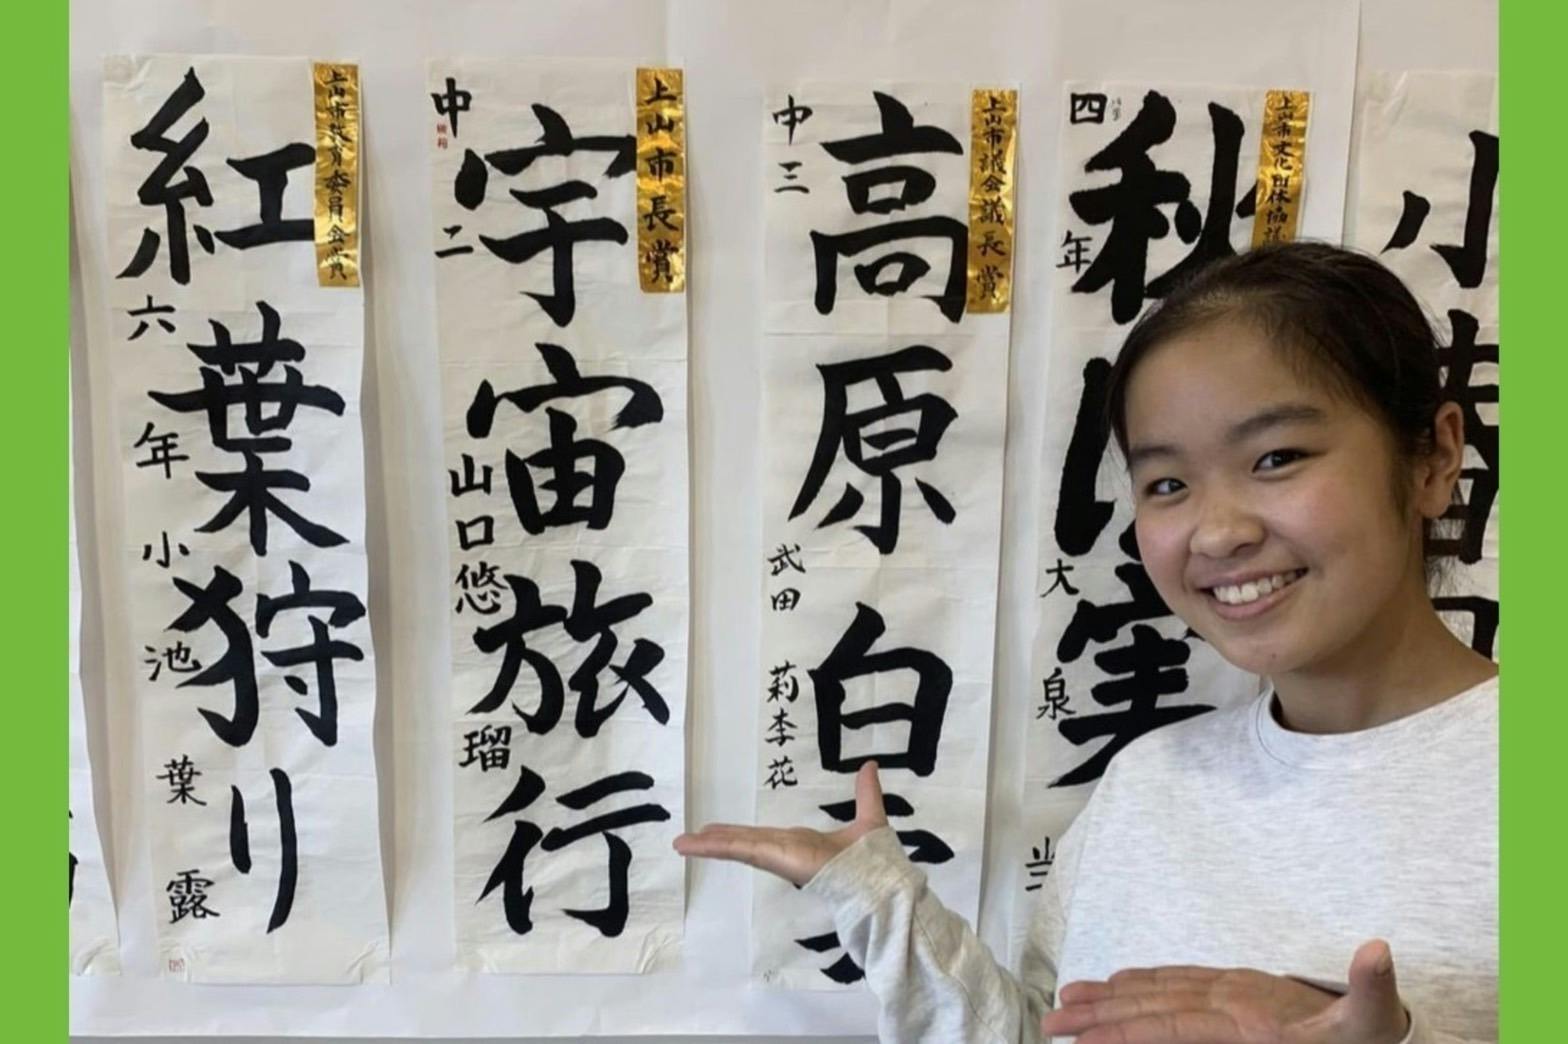 小
上山市文化団体協議
秋の実
四年 大泉
上山市議会議長賞
高原白
中三 武田莉李花
上山市長賞
宇宙旅行
中二 山口悠瑠
上山市教育委員会賞
紅葉狩り
六年 小池葉露